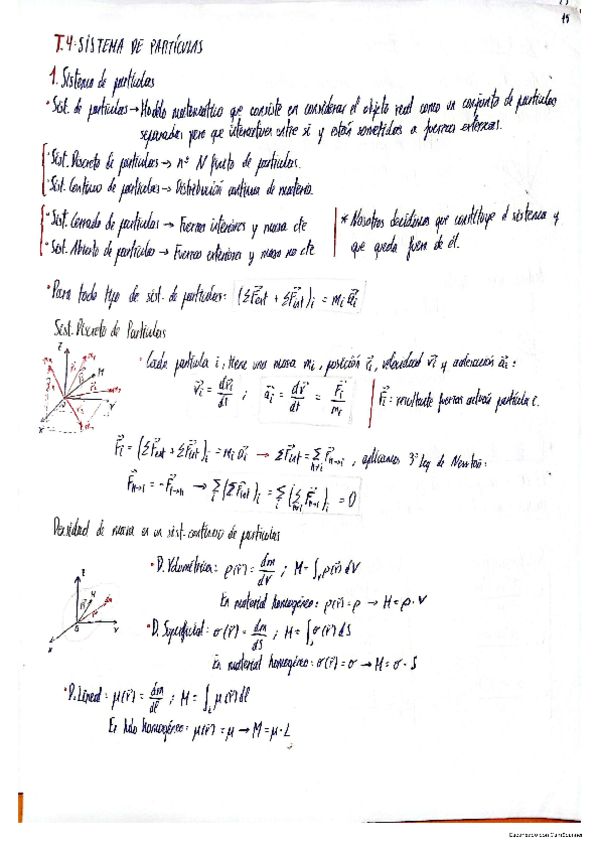 15
T.4: SISTEMA DE PARTÍCULAS
1. Sistema de partículas
• Sist. de partículas → Modelo matemático que consiste en considerar el objeto real como un conjunto de partículas
separadas pero que interactúan entre sí y están sometidas a fuerzas externas.
• Sist. Discreto de partículas → nº N finito de partículas.
• Sist. Continuo de partículas → Distribución continua de materia.
• Sist. Cerrado de partículas → Fuerzas interiores y masa cte
• Sist. Abierto de partículas → Fuerzas exteriores y masa no cte
* Nosotros decidimos que constituye el sistema y
que queda fuera de él.
• Para todo tipo de sist. de partículas: (ΣF⃗ext + ΣF⃗int)i = mi a⃗i
Sist. Discreto de Partículas
• Cada partícula i, tiene una masa mi, posición r⃗i, velocidad v⃗i y aceleración a⃗i:
v⃗i = dr⃗i/dt ; a⃗i = dv⃗/dt = F⃗i/mi
F⃗i: resultante fuerzas actúan partícula i.
F⃗i = (ΣF⃗ext + ΣF⃗int)i = mi a⃗i → ΣF⃗int = Σn≠i F⃗n→i , aplicamos 3ª ley de Newton:
F⃗n→i = -F⃗i→n → Σi(ΣF⃗int)i = Σi(Σn≠i F⃗n→i)i = 0
Densidad de masa en un sist. continuo de partículas
• D. Volumétrica: ρ(r⃗) = dm/dV ; M = ∫V ρ(r⃗) dV
En material homogéneo: ρ(r⃗) = ρ → M = ρ · V
• D. Superficial: σ(r⃗) = dm/dS ; M = ∫S σ(r⃗) dS
En material homogéneo: σ(r⃗) = σ → M = σ · S
• D. Lineal: μ(r⃗) = dm/dl ; M = ∫L μ(r⃗) dl
En hilo homogéneo: μ(r⃗) = μ → M = μ · L
Escaneado con CamScanner